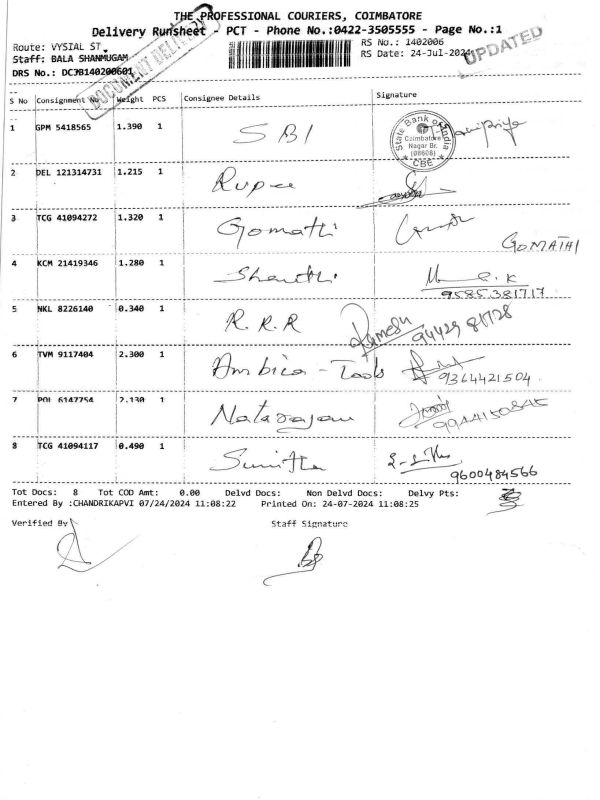 THE PROFESSIONAL COURIERS, COIMBATORE
Delivery Runsheet - PCT - Phone No.:0422-3505555 - Page No.:1
Route: VYSIAL ST. RS No.: 1402006
Staff: BALA SHANMUGAM RS Date: 24-Jul-2024
UPDATED
DRS No.: DCJB140200601
DOCUMENT DELIVERY
S No Consignment No Weight PCS Consignee Details Signature
1 GPM 5418565 1.390 1 SBI
State Bank of India
Coimbatore
Nagar Br.
(08608)
CBE
2 DEL 121314731 1.215 1 Rupee
3 TCG 41094272 1.320 1 Gomathi
GOMATHI
4 KCM 21419346 1.280 1 Shanthi
9585381717
5 NKL 8226140 0.340 1 R.R.R Ramesh
94429 81728
6 TVM 9117404 2.300 1 Ambica - Tools
9364421504
7 POL 6147754 2.130 1 Natarajan
9944150845
8 TCG 41094117 0.490 1 Sunitha
9600484566
Tot Docs: 8 Tot COD Amt: 0.00 Delvd Docs: Non Delvd Docs: Delvy Pts:
Entered By :CHANDRIKAPVI 07/24/2024 11:08:22 Printed On: 24-07-2024 11:08:25
Verified By Staff Signature